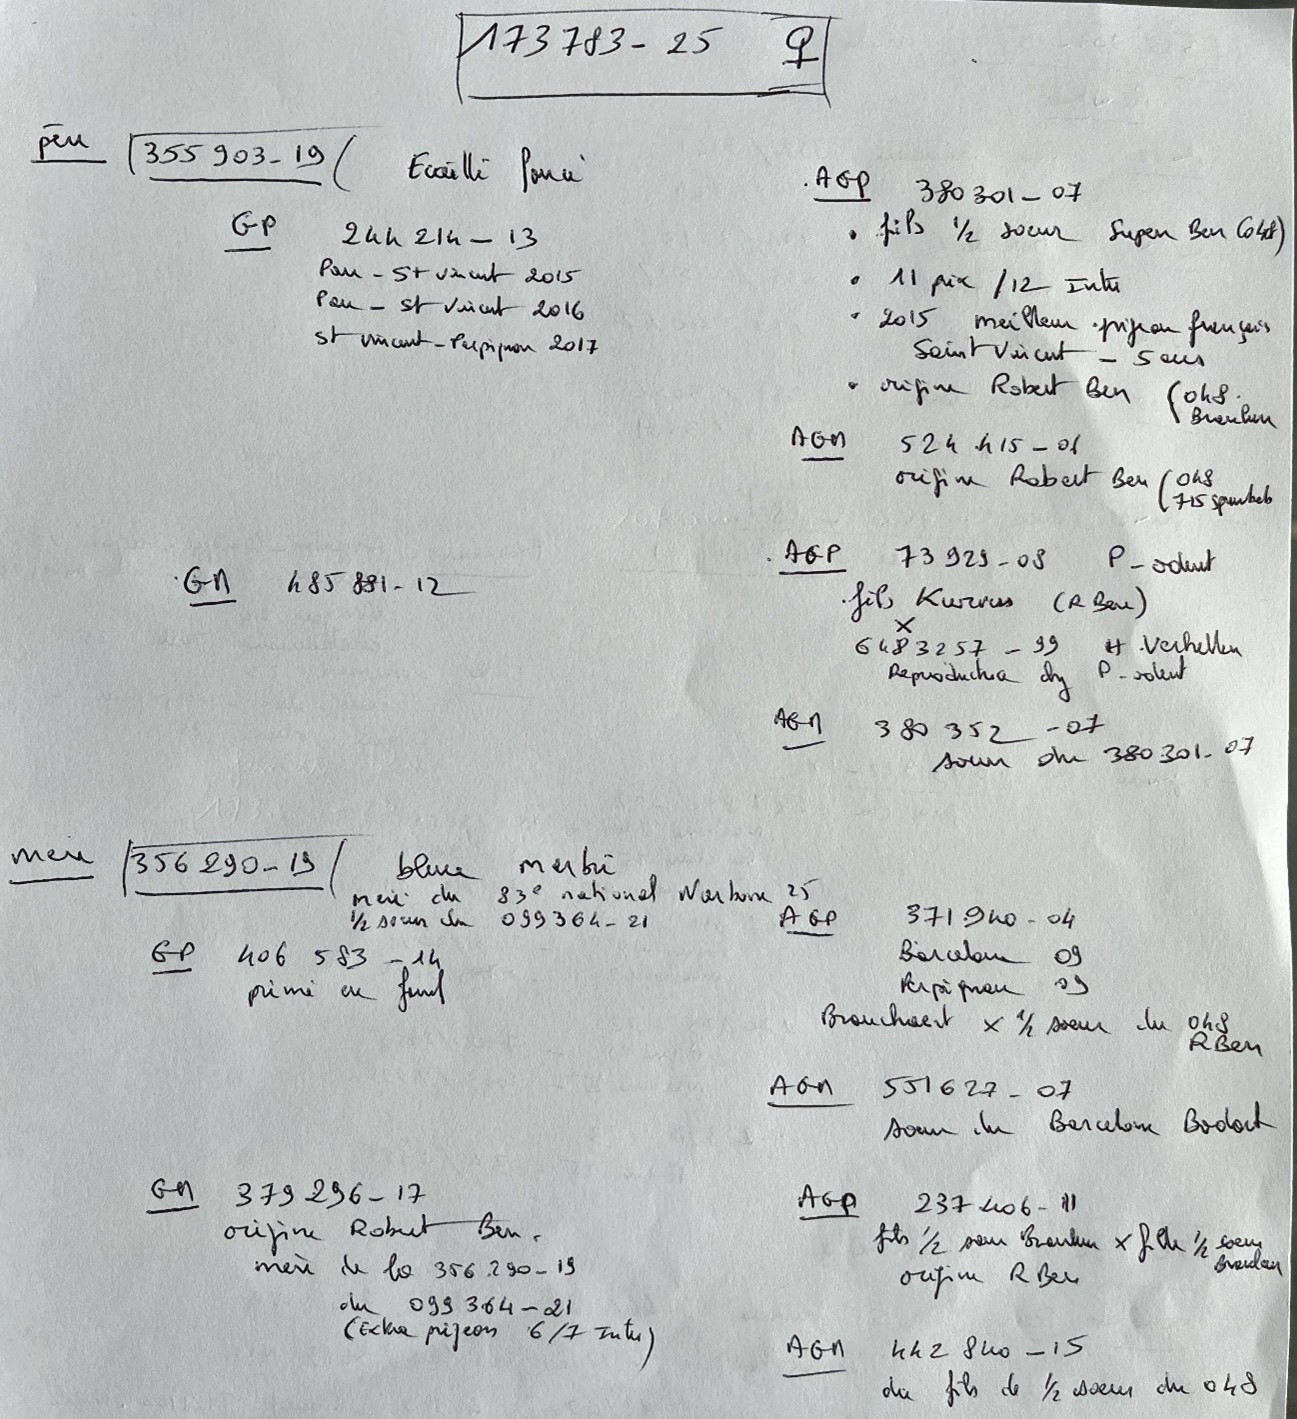 173783-25 ♀
père 355 903-19 Ecaillé foncé
GP 244 214-13
Pau - St Vincent 2015
Pau - St Vincent 2016
St Vincent - Perpignan 2017
AGP 380301-07
• fils 1/2 soeur Super Ben (048)
• 11 prix /12 Inter
• 2015 meilleur pigeon français
Saint Vincent - 5 ans
• origine Robert Ben (048
AGM 524 415-01
origine Robert Ben (048
715
GM 485 881-12
AGP 73 929-08
fils Kurvus (R Ben)
x
6483257-99 H Verhellen
380 352-07
soeur du 380301-07
mère 356 290-19 bleue
mère du 83e national Narbonne 25
1/2 soeur du 099364-21
GP 406 583-14
primé en fond
AGP 371 940-04
Barcelone 09
Perpignan 09
x 1/2 soeur du 048
R Ben
AGM 551627-07
soeur du Barcelone
GM 379 296-17
origine Robert Ben.
mère de la 356 290-19
du 099 364-21
(Extra pigeon 6/7 Inter)
AGP 237 406-11
fils 1/2 soeur x fille 1/2 soeur
origine R Ben
AGM 442 840-15
du fils de 1/2 soeur du 048